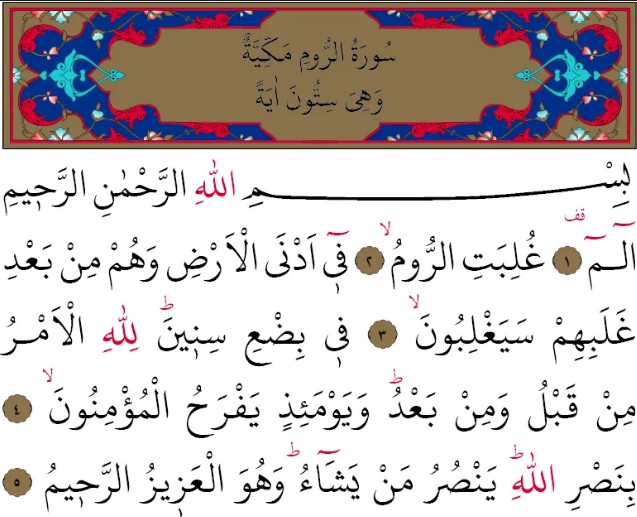 سُورَةُ الرُّومِ مَكِّيَّةٌ
وَهِىَ سِتُّونَ اٰيَةً
بِسْمِ اللهِ الرَّحْمٰنِ الرَّح۪يمِ
الٓمٓ ﴿١﴾ قف غُلِبَتِ الرُّومُ ﴿٢﴾ لا ف۪ٓى اَدْنَى الْاَرْضِ وَهُمْ مِنْ بَعْدِ
غَلَبِهِمْ سَيَغْلِبُونَ ﴿٣﴾ لا ف۪ى بِضْعِ سِن۪ينَ ط لِلّٰهِ الْاَمْرُ
مِنْ قَبْلُ وَمِنْ بَعْدُ ط وَيَوْمَئِذٍ يَفْرَحُ الْمُؤْمِنُونَ ﴿٤﴾ لا
بِنَصْرِ اللهِ ط يَنْصُرُ مَنْ يَشَٓاءُ ط وَهُوَ الْعَز۪يزُ الرَّح۪يمُ ﴿٥﴾